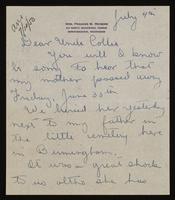 July 4th
Dear Uncle Colles
You will I know
is sorry to hear that
my mother passed away
Friday, June 30th
We buried her yesterday
next to my father in
the little cemetery here
in Birmingham.
It was a great shock
to us altho she has